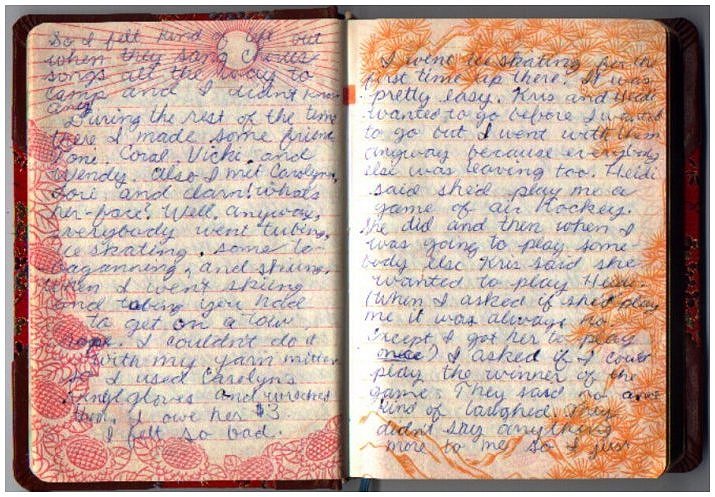 So I felt kind of left out
when they sang chorus
songs all the way to
camp and I didn't know
any.
During the rest of the time
there I made some friends
Toni, Coral, Vicki, and
Wendy. Also I met Carolyn,
Lori, and darn! whats
her-face. Well, anyway,
everybody went tubing,
ice skating, some to-
baganning, and skiing.
When I went skiing
and tubing you had
to get on a tow
rope. I couldn't do it
with my yarn mittens
so I used Carolyn's
vinyl gloves and wrecked
them. I owe her $3.
I felt so bad.
I went ice skating for the
first time up there. It was
pretty easy. Kris and Heidi
wanted to go before I wanted
to go but I went with them
anyway because everybody
else was leaving too. Heidi
said she'd play me a
game of air hockey.
She did and then when I
was going to play some-
body else Kris said she
wanted to play Heidi.
(When I asked if she'd play
me it was always no.
Except I got her to play
once) I asked if I could
play the winner of the
game. They said no and
kind of laughed. They
didn't say anything
more to me so I just